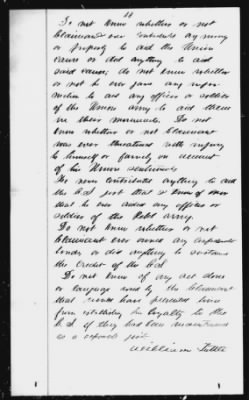 Do not know whether or not
Claimant ever contributed any money
or property to aid the Union
cause or did anything to aid
said cause; do not know whether
or not he ever gave any
to aid any officer or soldier
of the Union army to aid them
in their movements. Do not
know whether or not Claimant
was ever threatened with injury
to himself or family on account
of his Union sentiments
contributed anything to aid
the C.S. just that I know of nor
that he ever aided any officer or
soldier of the Rebel army.
Do not know whether or not
Claimant ever owned any Confederate
bonds or did anything to sustain
the credit of the C.S.
Do not know of any act done
or language used by the Claimant
that would have prevented him
from establishing his loyalty to the
C.S. if they had been maintained
as a
William